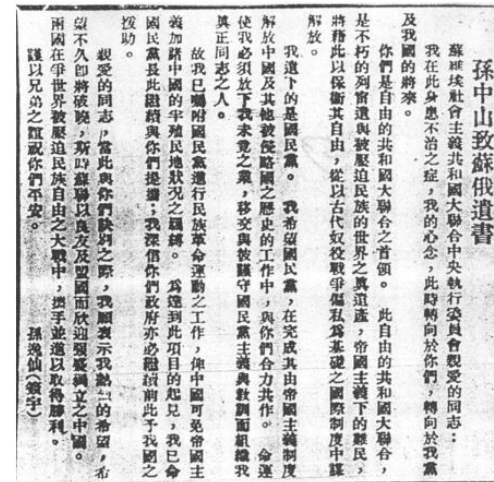 孫中山致蘇俄遺書
蘇維埃社會主義共和國大聯合中央執行委員會親愛的同志：
我在此身患不治之症，我的心念，此時轉向於你們，轉向於我黨
及我國的將來。
你們是自由的共和國大聯合之首領。此自由的共和國大聯合，
是不朽的列甯遺與被壓迫民族的世界之眞遺產，帝國主義下的難民，
將藉此以保衞其自由，從以古代奴役戰爭偏私爲基礎之國際制度中謀
解放。
我遺下的是國民黨。我希望國民黨，在完成其由帝國主義制度
解放中國及其他被侵略國之歷史的工作中，與你們合力共作。命運
使我必須放下我未竟之業，移交與彼謹守國民黨主義與敎訓而組織我
眞正同志之人。
故我已囑咐國民黨進行民族革命運動之工作，俾中國可免帝國主
義加諸中國的半殖民地狀況之羈縛。爲達到此項目的起見，我已命
國民黨長此繼續與你們提攜；我深信你們政府亦必繼續前此予我國之
援助。
親愛的同志，當此與你們訣別之際，我願表示我熱烈的希望，希
望不久卽將破曉，斯時蘇聯以良友及盟國而欣迎强盛獨立之中國。
兩國在爭世界被壓迫民族自由之大戰中，攜手並進以取得勝利。
謹以兄弟之誼祝你們平安。
孫逸仙（簽字）